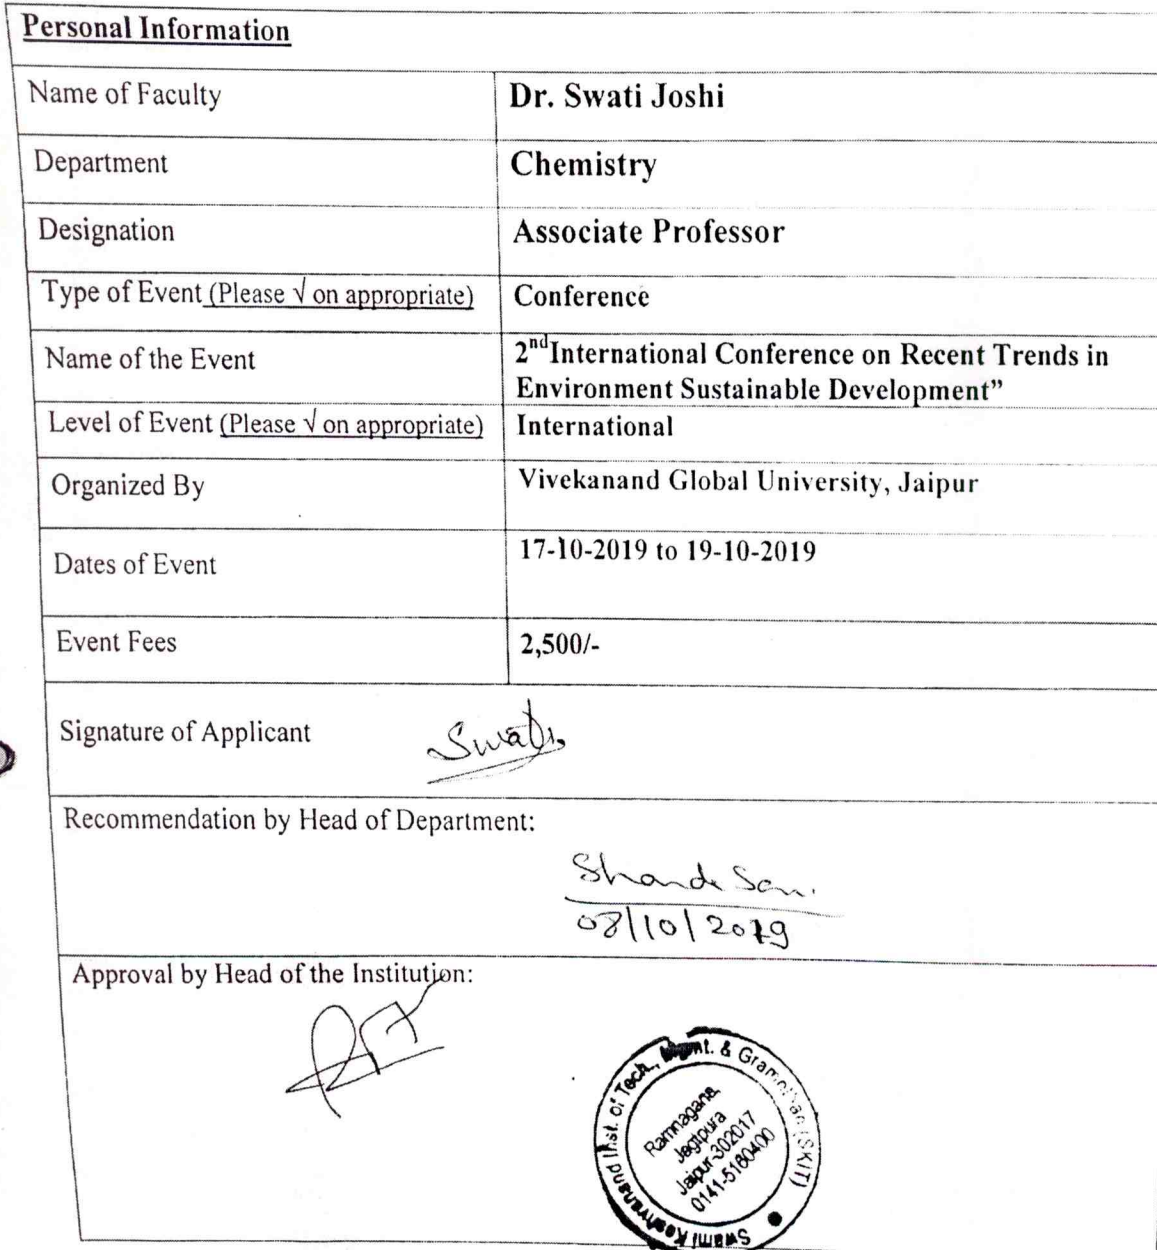 Personal Information
Name of Faculty
Dr. Swati Joshi
Department
Chemistry
Designation
Associate Professor
Type of Event (Please √ on appropriate)
Conference
Name of the Event
2nd International Conference on Recent Trends in
Environment Sustainable Development”
Level of Event (Please √ on appropriate)
International
Organized By
Vivekanand Global University, Jaipur
Dates of Event
17-10-2019 to 19-10-2019
Event Fees
2,500/-
Signature of Applicant
Swati
Recommendation by Head of Department:
08/10/2019
Approval by Head of the Institution:
Swami Keshvanand Inst. of Tech., Mgmt. & Gramothan (SKIT)
Jagtpura
Jaipur-302017
0141-5160400